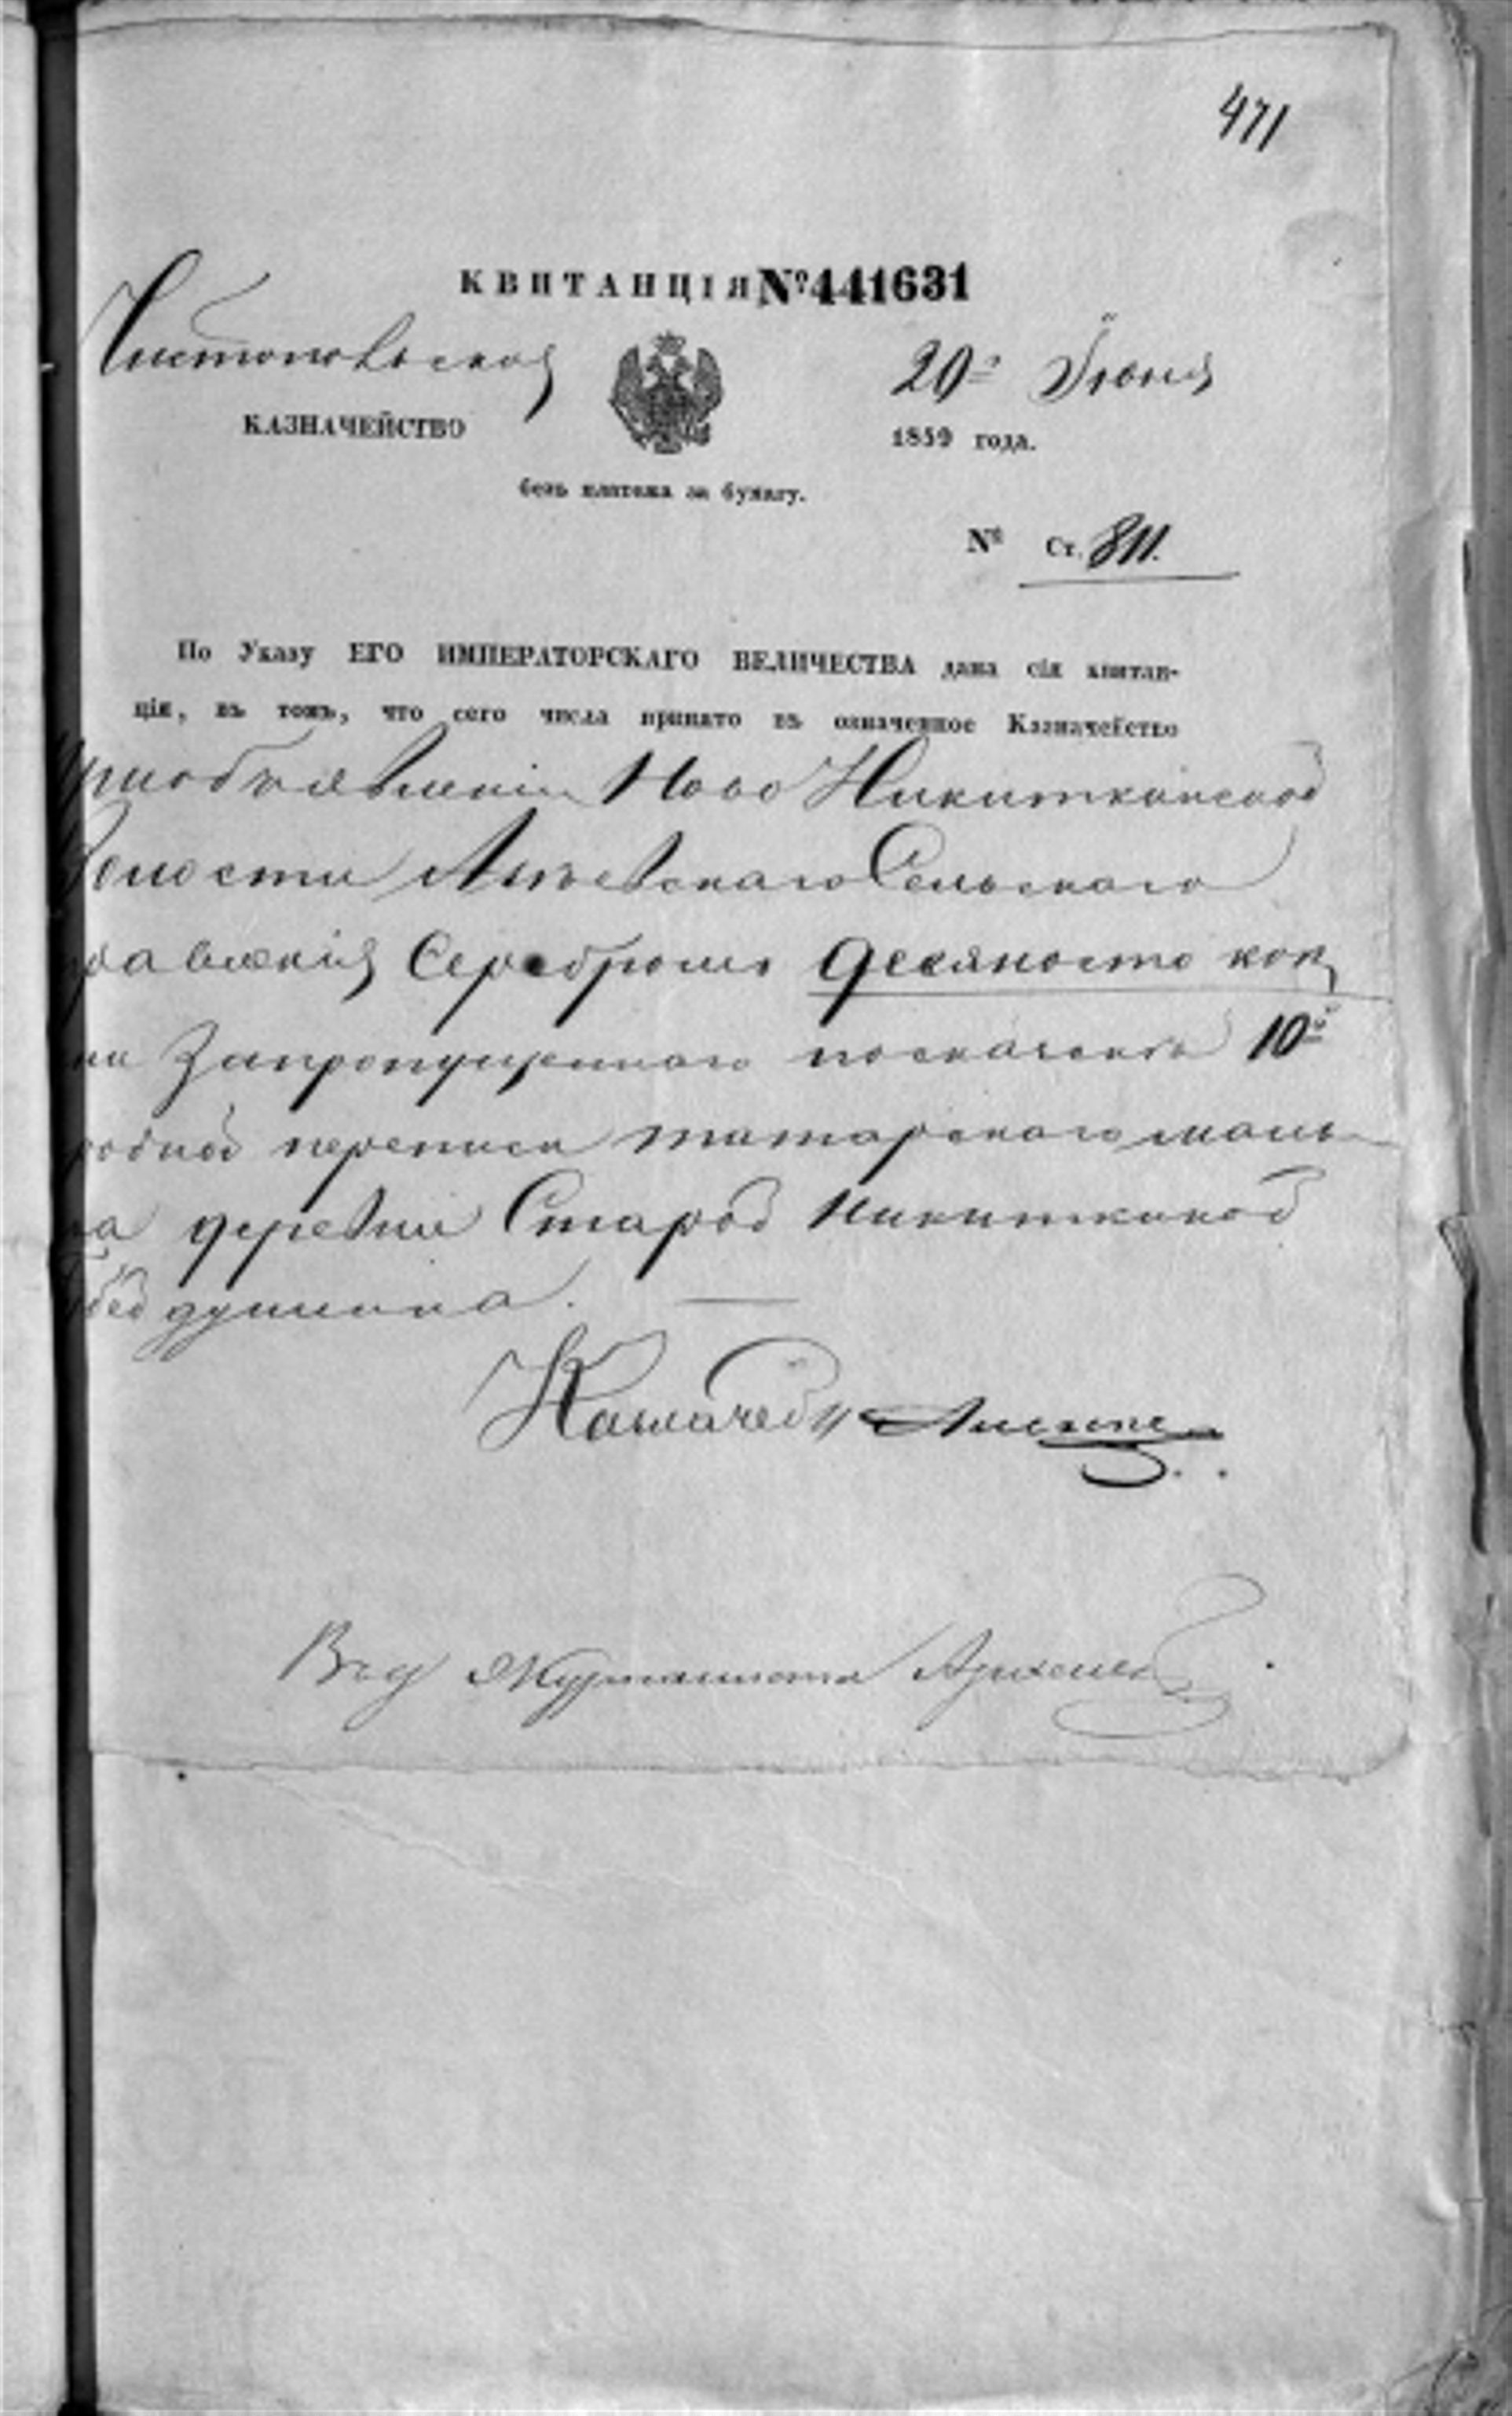 471
КВИТАНЦІЯ № 441631
Чистопольское
КАЗНАЧЕЙСТВО
20го Іюня
1859 года.
безъ платежа за бумагу.
№ Ст. 811.
По Указу ЕГО ИМПЕРАТОРСКАГО ВЕЛИЧЕСТВА дана сія квитан-
ція, въ томъ, что сего числа принято въ означенное Казначейство
приобъявленіи Ново Никиткинской
Волости Сельскаго
равленія Серебромъ девяносто коп
За пропущеннаго 10й
родной переписи татарскаго маль
ка деревни Старой Никиткиной
Казначей
Журналиста